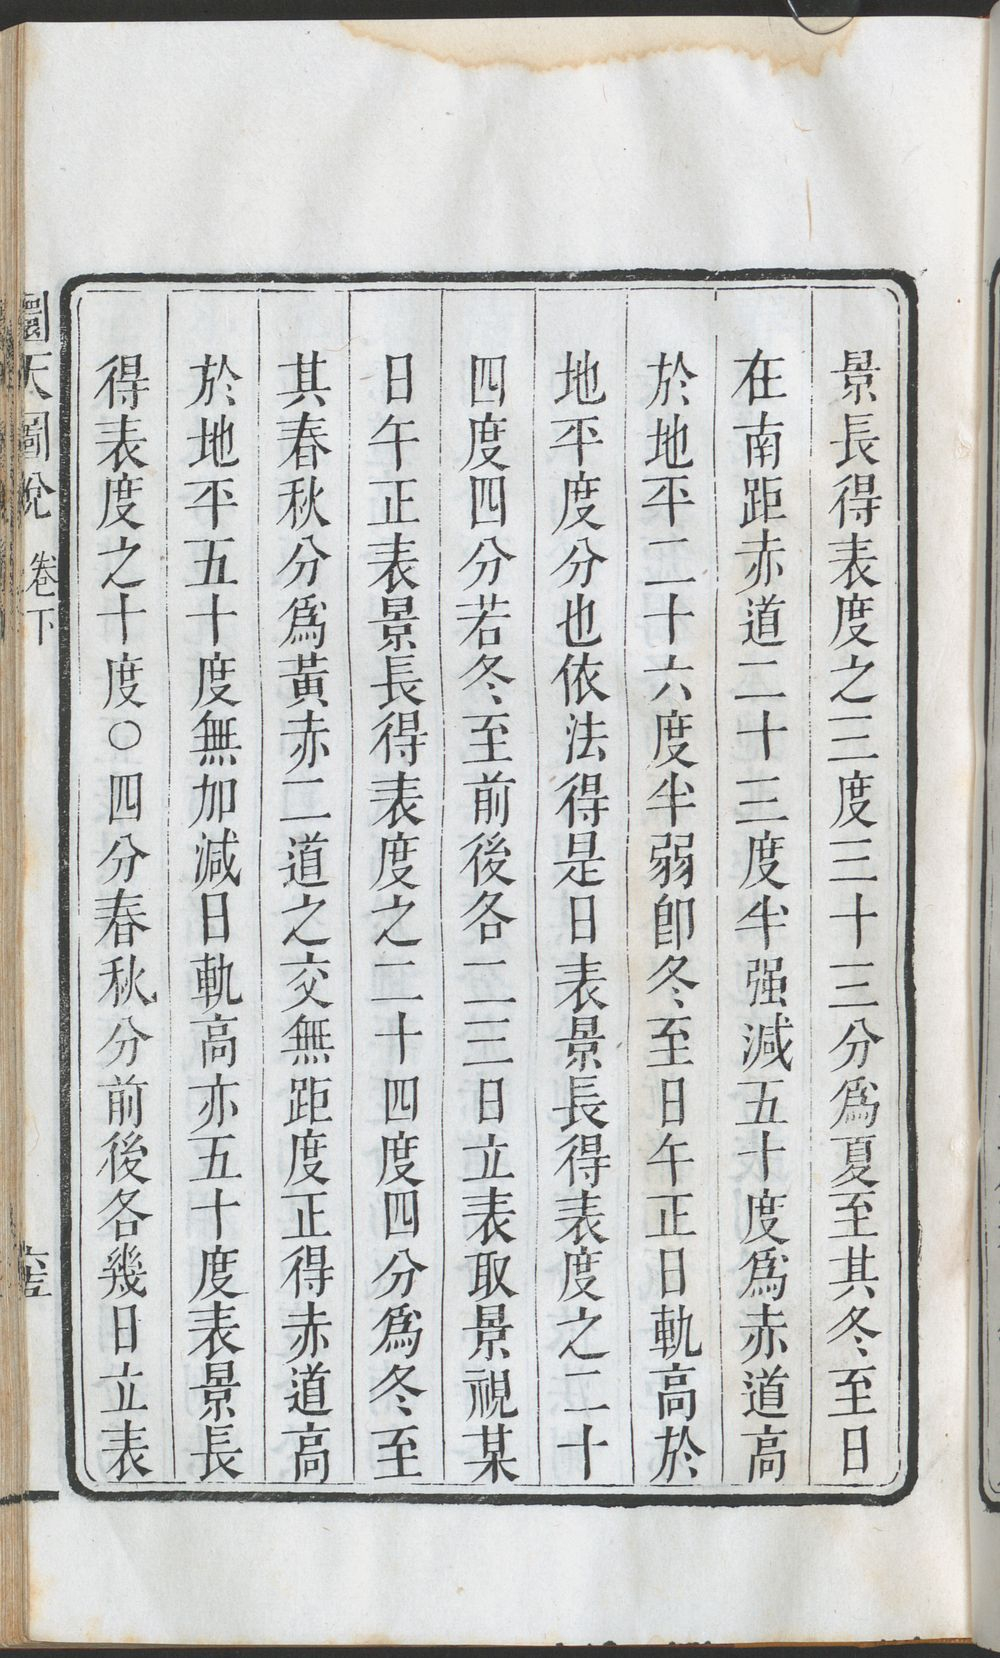 景長得表度之三度三十三分爲夏至其冬至日
在南距赤道二十三度半强減五十度爲赤道高
於地平二十六度半弱卽冬至日午正日軌高於
地平度分也依法得是日表景長得表度之二十
四度四分若冬至前後各二三日立表取景視某
日午正表景長得表度之二十四度四分爲冬至
其春秋分爲黃赤二道之交無距度正得赤道高
於地平五十度無加減日軌高亦五十度表景長
得表度之十度○四分春秋分前後各幾日立表
圜天圖說 卷下